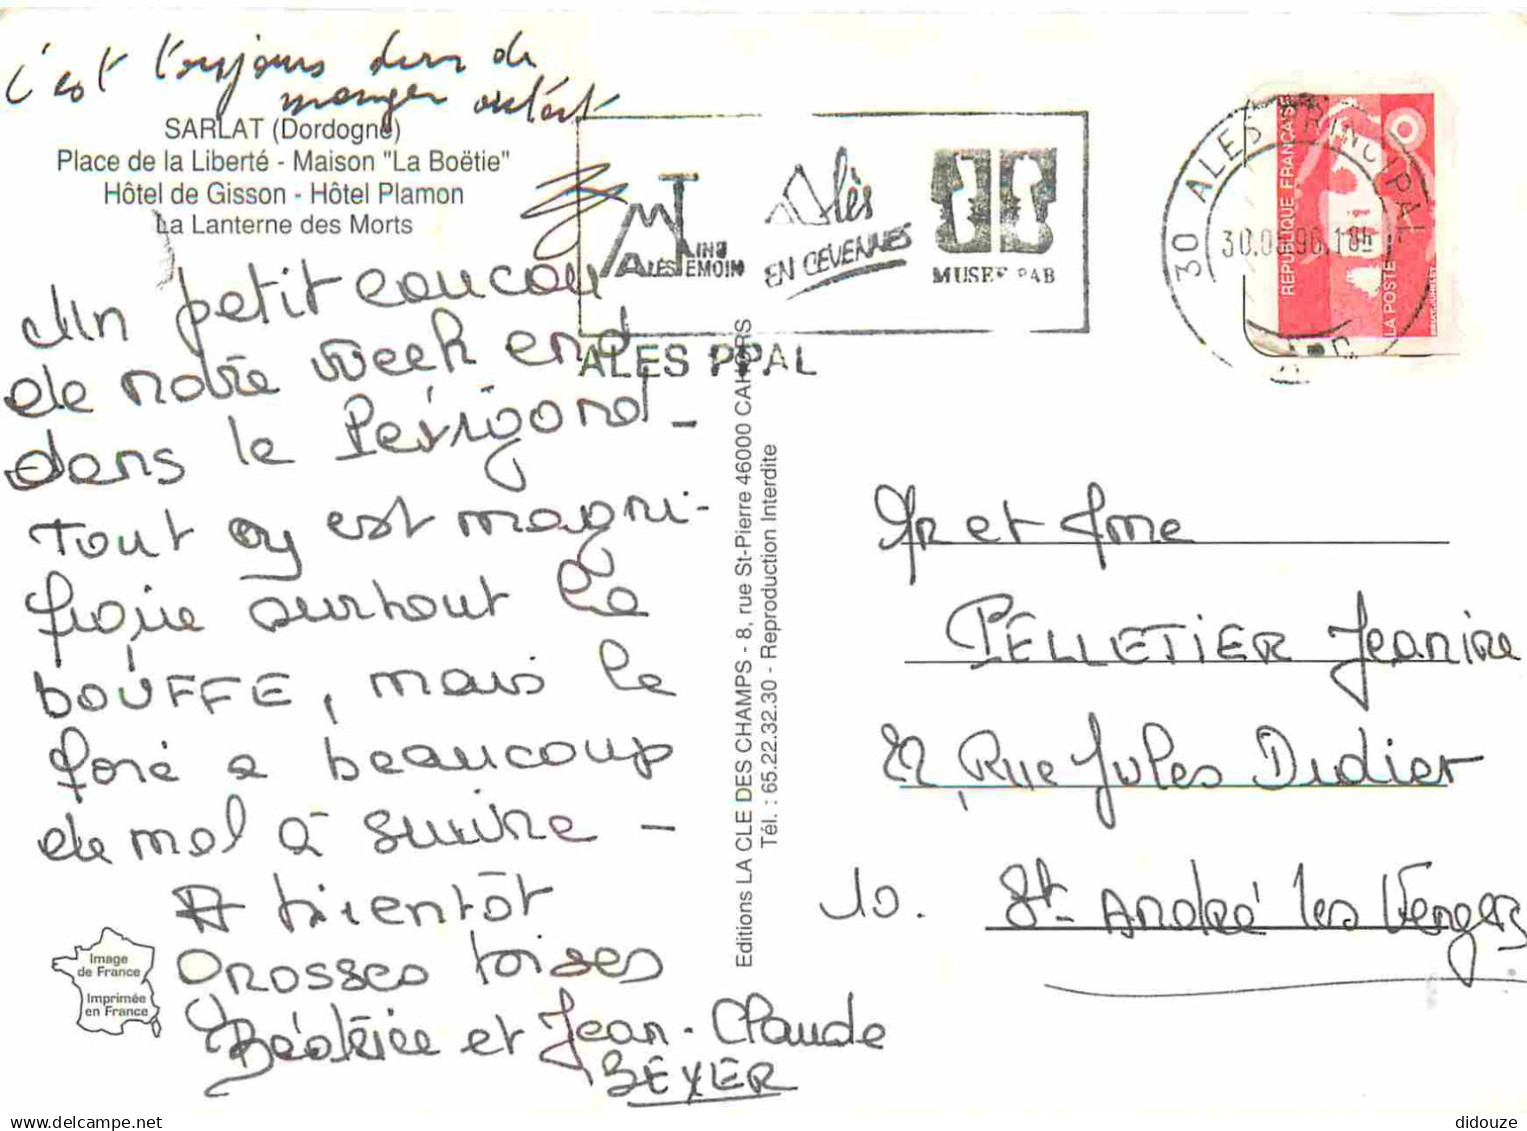 c'est toujours dur de
manger
SARLAT (Dordogne)
Place de la Liberté - Maison "La Boëtie"
Hôtel de Gisson - Hôtel Plamon
La Lanterne des Morts
Un petit coucou
de notre week end
dans le Périgord -
Tout y est magni-
fique surtout la
BOUFFE, mais le
foie a beaucoup
de mal à suivre -
A bientôt
Grosses bises
Béatrice et Jean-Claude
BEYER
Image
de France
Imprimée
en France
Editions LA CLE DES CHAMPS - 8, rue St-Pierre 46000 CAHORS
Tél. : 65.22.32.30 - Reproduction Interdite
MT
ALES TEMOIN
Alès
EN CEVENNES
MUSEE PAB
ALES PPAL
30 ALES PRINCIPAL
REPUBLIQUE FRANÇAISE
LA POSTE
Mr et Mme
PELLETIER Jeanine
22, Rue Jules Didier
10. St-André les Vergers
didouze